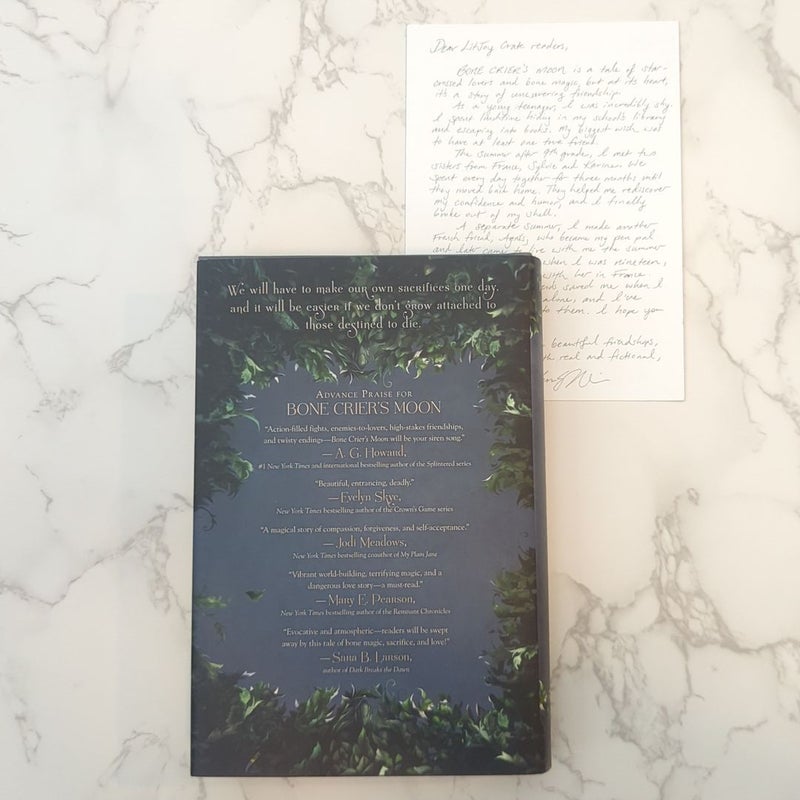 Dear LitJoy Crate readers,
BONE CRIER'S MOON is a tale of star-
crossed lovers and bone magic, but at its heart,
it's a story of uncovering friendship.
As a young teenager, I was incredibly shy.
I spent lunchtime hiding in my school's library
and escaping into books. My biggest wish was
to have at least one true friend.
The summer after 9th grade, I met two
sisters from France, Sylvie and Karine. We
spent every day together for three months until
they moved back home. They helped me rediscover
my confidence and humor, and I finally
broke out of my shell.
A separate summer, I made another
French friend, Agnès, who became my pen pal
and later came to live with me the summer
when I was nineteen,
with her in France.
saved me when I
alone, and I've
to them. I hope you
beautiful friendships,
real and fictional,
We will have to make our own sacrifices one day,
and it will be easier if we don't grow attached to
those destined to die.
ADVANCE PRAISE FOR
BONE CRIER'S MOON
"Action-filled fights, enemies-to-lovers, high-stakes friendships,
and twisty endings—Bone Crier's Moon will be your siren song."
— A. G. Howard,
#1 New York Times and international bestselling author of the Splintered series
"Beautiful, entrancing, deadly."
— Evelyn Skye,
New York Times bestselling author of the Crown's Game series
"A magical story of compassion, forgiveness, and self-acceptance."
— Jodi Meadows,
New York Times bestselling coauthor of My Plain Jane
"Vibrant world-building, terrifying magic, and a
dangerous love story—a must-read."
— Mary E. Pearson,
New York Times bestselling author of the Remnant Chronicles
"Evocative and atmospheric—readers will be swept
away by this tale of bone magic, sacrifice, and love!"
— Sara B. Larson,
author of Dark Breaks the Dawn